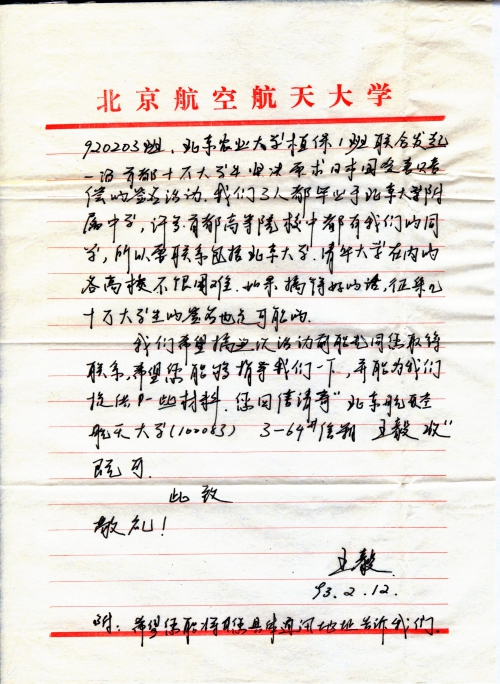 北京航空航天大学
920203班、北京农业大学植保1班联合发起
一次首都十万大学生坚决要求日本国受害赔
偿的签名活动.我们3人都毕业于北京大学附
属中学,许多首都高等院校中都有我们的同
学,所以要联系包括北京大学、清华大学在内的
各高校不很困难.如果搞得好的话,征集几
十万大学生的签名也是可能的.
我们希望搞这次活动前能先同您取得
联系,希望您能够指导我们一下,并能为我们
提供一些材料.您回信请寄"北京航空
航天大学(100083) 3-64#信箱 王毅 收"
既可.
此致
敬礼!
王毅
93.2.12.
附:希望您能将您具体通讯地址告诉我们.